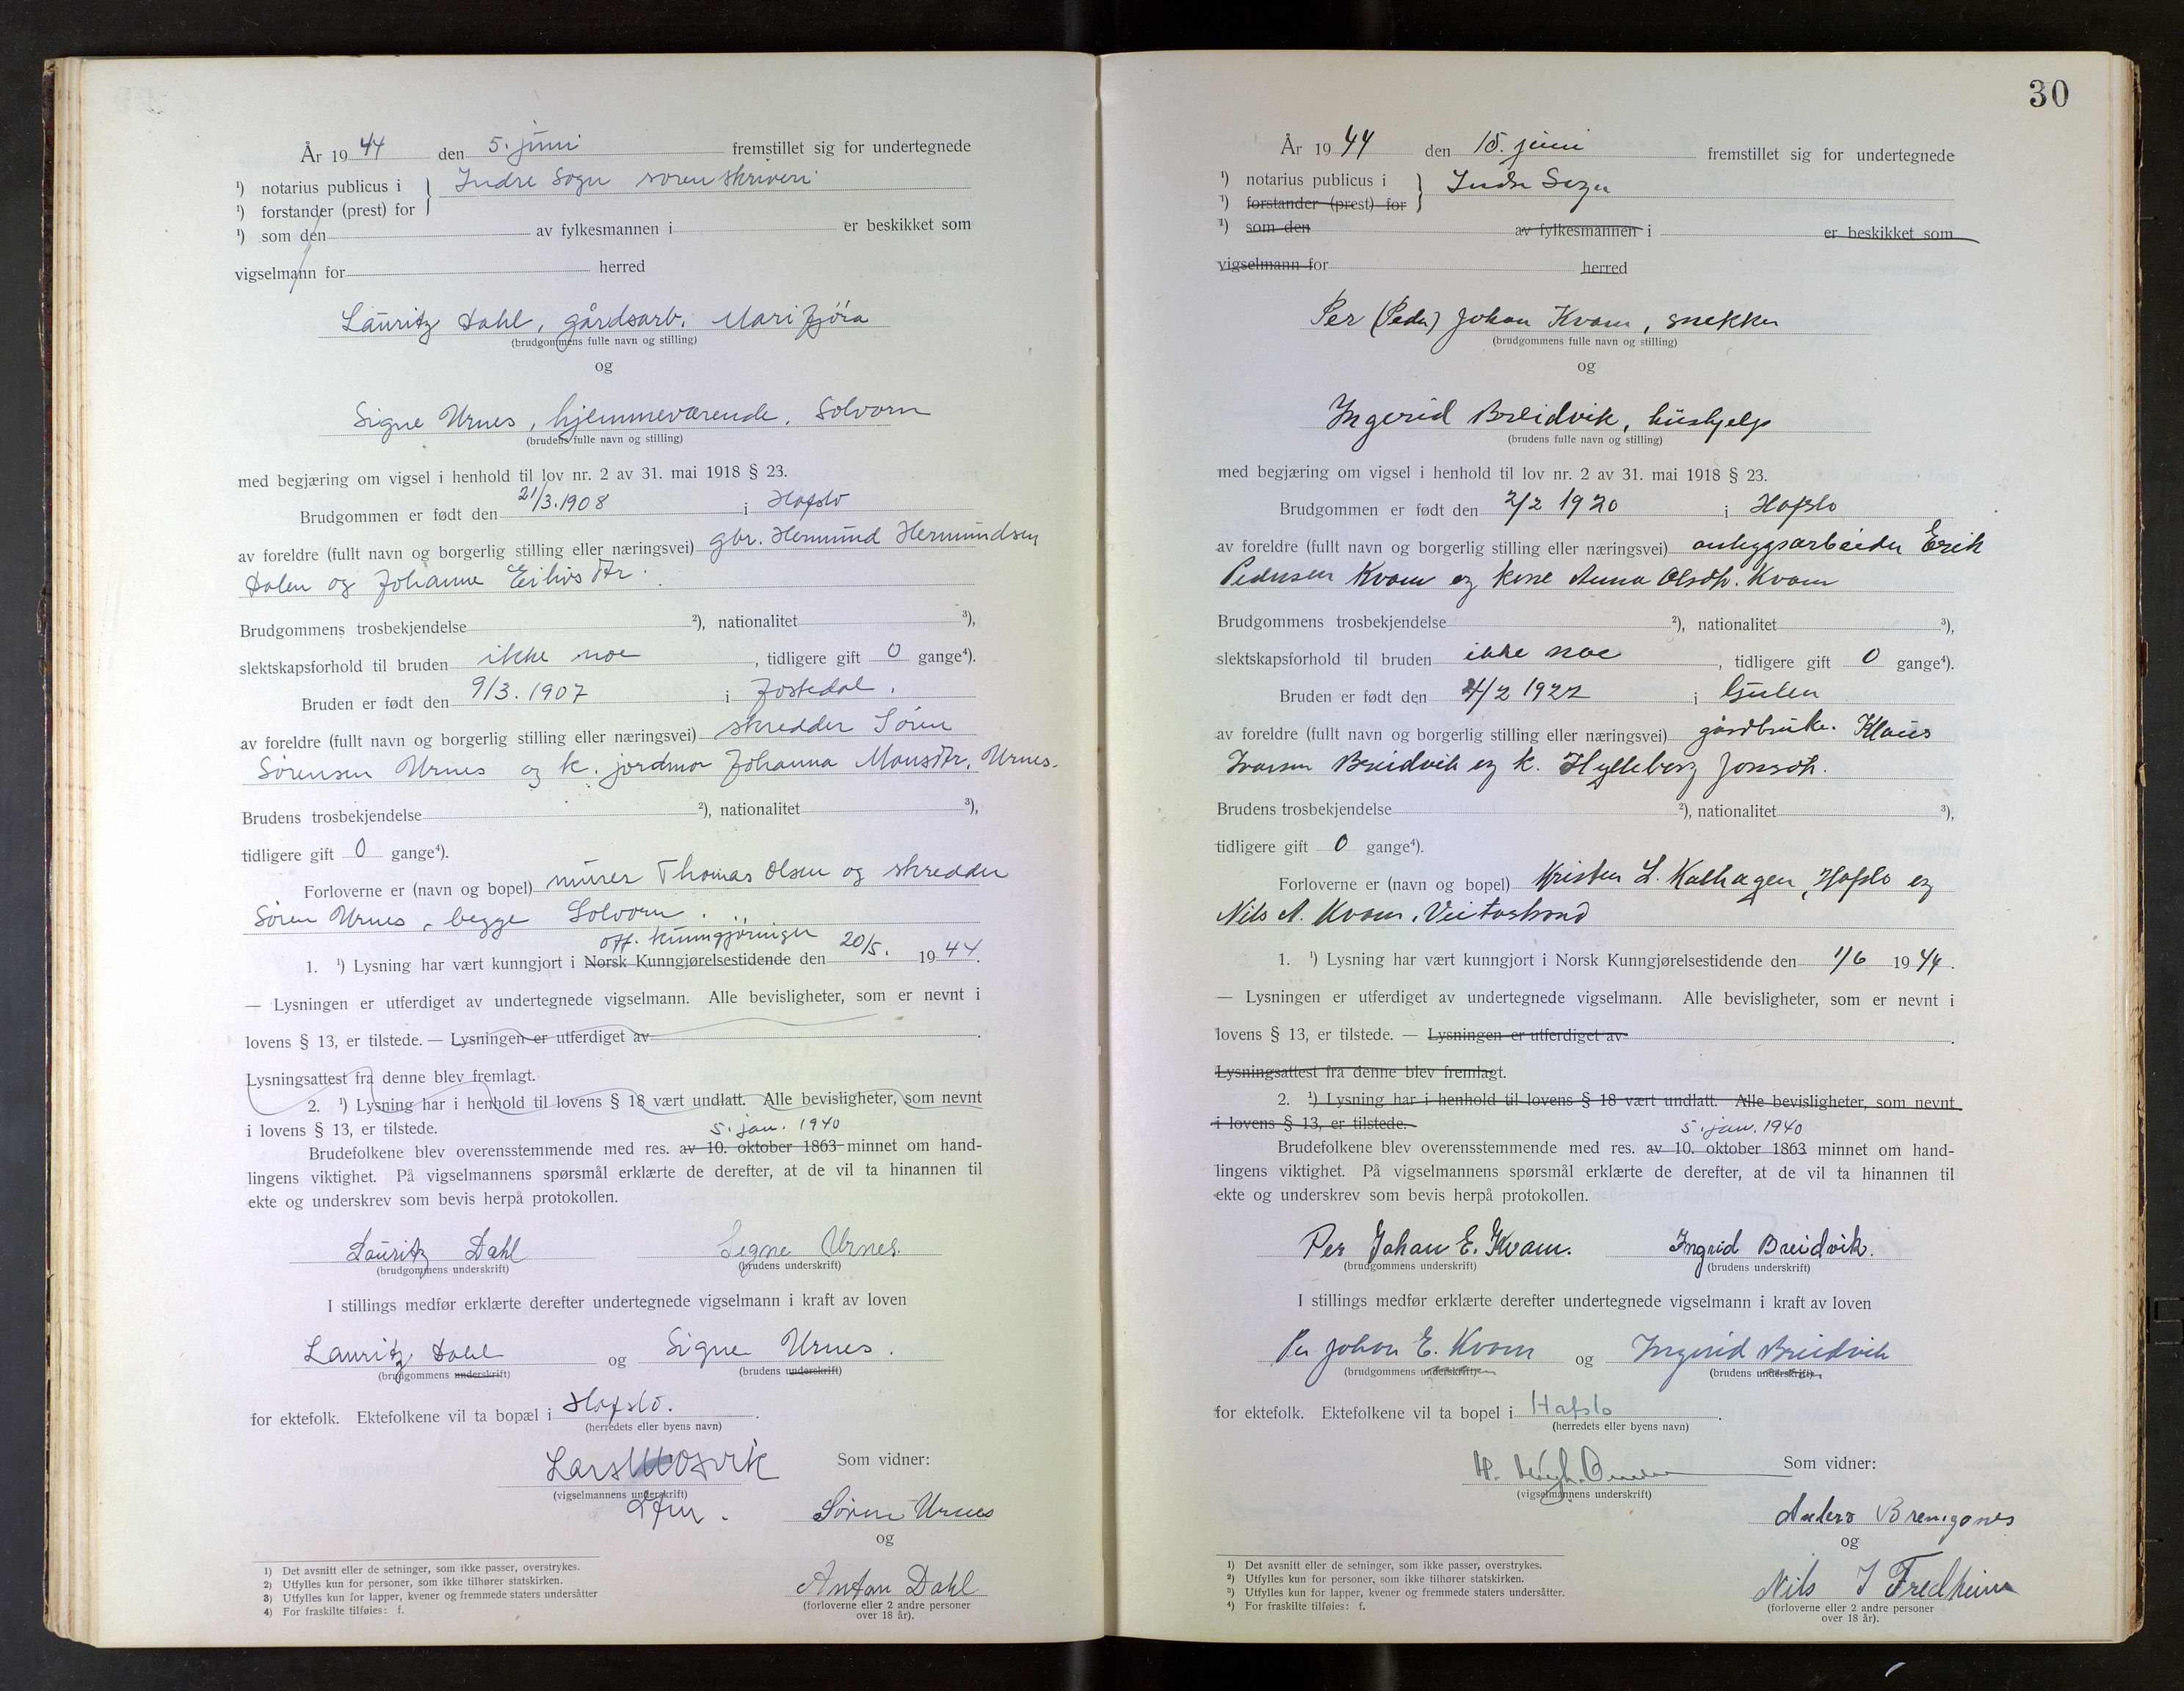 År 1944 den 5. juni fremstillet sig for undertegnede
¹) notarius publicus i } Indre Sogn sorenskriveri
¹) forstander (prest) for
¹) som den av fylkesmannen i er beskikket som
vigselmann for herred
Lauritz Dahl, gårdsarb. Marifjöra
(brudgommens fulle navn og stilling)
og
Signe Urnes, hjemmeværende, Solvorn
(brudens fulle navn og stilling)
med begjæring om vigsel i henhold til lov nr. 2 av 31. mai 1918 § 23.
Brudgommen er født den 21/3.1908 i Hafslo
av foreldre (fullt navn og borgerlig stilling eller næringsvei) gbr. Hermund Hermundsen
Dalen og Johanne Eilivsdtr.
Brudgommens trosbekjendelse ²), nationalitet ³),
slektskapsforhold til bruden ikke noe, tidligere gift 0 gange⁴).
Bruden er født den 9/3. 1907 i Jostedal.
av foreldre (fullt navn og borgerlig stilling eller næringsvei) skredder Sören
Sörensen Urnes og k. jordmor Johanna Monsdtr. Urnes.
Brudens trosbekjendelse ²), nationalitet ³),
tidligere gift 0 gange⁴).
Forloverne er (navn og bopel) murer Thomas Olsen og skredder
Sören Urnes, begge Solvorn.
off. kunngjøringer
1. ¹) Lysning har vært kunngjort i Norsk Kunngjørelsestidende den 20/5. 1944.
— Lysningen er utferdiget av undertegnede vigselmann. Alle bevisligheter, som er nevnt i
lovens § 13, er tilstede. — Lysningen er utferdiget av .
Lysningsattest fra denne blev fremlagt.
2. ¹) Lysning har i henhold til lovens § 18 vært undlatt. Alle bevisligheter, som nevnt
i lovens § 13, er tilstede.
5. jan. 1940
Brudefolkene blev overensstemmende med res. av 10. oktober 1863 minnet om hand-
lingens viktighet. På vigselmannens spørsmål erklærte de derefter, at de vil ta hinannen til
ekte og underskrev som bevis herpå protokollen.
Lauritz Dahl Signe Urnes.
(brudgommens underskrift) (brudens underskrift)
I stillings medfør erklærte derefter undertegnede vigselmann i kraft av loven
Lauritz Dahl og Signe Urnes.
(brudgommens underskrift) (brudens underskrift)
for ektefolk. Ektefolkene vil ta bopæl i Hafslo.
(herredets eller byens navn)
Lars Som vidner:
(vigselmannens underskrift)
Sören Urnes
og
Anton Dahl
(forloverne eller 2 andre personer
over 18 år).
1) Det avsnitt eller de setninger, som ikke passer, overstrykes.
2) Utfylles kun for personer, som ikke tilhører statskirken.
3) Utfylles kun for lapper, kvener og fremmede staters undersåtter
4) For fraskilte tilføies: f.
30
År 1944 den 15. juni fremstillet sig for undertegnede
¹) notarius publicus i } Indre Sogn
¹) forstander (prest) for
¹) som den av fylkesmannen i er beskikket som
vigselmann for herred
Per (Peder) Johan Kvam, snekker
(brudgommens fulle navn og stilling)
og
Ingerid Breidvik, hushjelp
(brudens fulle navn og stilling)
med begjæring om vigsel i henhold til lov nr. 2 av 31. mai 1918 § 23.
Brudgommen er født den 2/2 1920 i Hafslo
av foreldre (fullt navn og borgerlig stilling eller næringsvei) anleggsarbeider Erik
Pedersen Kvam og kone Anna Olsdtr. Kvam
Brudgommens trosbekjendelse ²), nationalitet ³),
slektskapsforhold til bruden ikke noe, tidligere gift 0 gange⁴).
Bruden er født den 4/2 1922 i Gulen
av foreldre (fullt navn og borgerlig stilling eller næringsvei) gårdbruker Klaus
Ivarsen Breidvik og k. Hylleborg Jonsdtr.
Brudens trosbekjendelse ²), nationalitet ³),
tidligere gift 0 gange⁴).
Forloverne er (navn og bopel) Kristen L. Kalhagen, Hafslo og
Nils A. Kvam, Veitastrond
1. ¹) Lysning har vært kunngjort i Norsk Kunngjørelsestidende den 1/6 1944.
— Lysningen er utferdiget av undertegnede vigselmann. Alle bevisligheter, som er nevnt i
lovens § 13, er tilstede. — Lysningen er utferdiget av .
Lysningsattest fra denne blev fremlagt.
2. ¹) Lysning har i henhold til lovens § 18 vært undlatt. Alle bevisligheter, som nevnt
i lovens § 13, er tilstede.
5. jan. 1940
Brudefolkene blev overensstemmende med res. av 10. oktober 1863 minnet om hand-
lingens viktighet. På vigselmannens spørsmål erklærte de derefter, at de vil ta hinannen til
ekte og underskrev som bevis herpå protokollen.
Per Johan E. Kvam. Ingrid Breidvik.
(brudgommens underskrift) (brudens underskrift)
I stillings medfør erklærte derefter undertegnede vigselmann i kraft av loven
Per Johan E. Kvam og Ingerid Breidvik
(brudgommens underskrift) (brudens underskrift)
for ektefolk. Ektefolkene vil ta bopel i Hafslo.
(herredets eller byens navn)
Som vidner:
(vigselmannens underskrift)
Anders
og
Nils J Fredheim
(forloverne eller 2 andre personer
over 18 år).
1) Det avsnitt eller de setninger, som ikke passer, overstrykes.
2) Utfylles kun for personer, som ikke tilhører statskirken.
3) Utfylles kun for lapper, kvener og fremmede staters undersåtter.
4) For fraskilte tilføies: f.